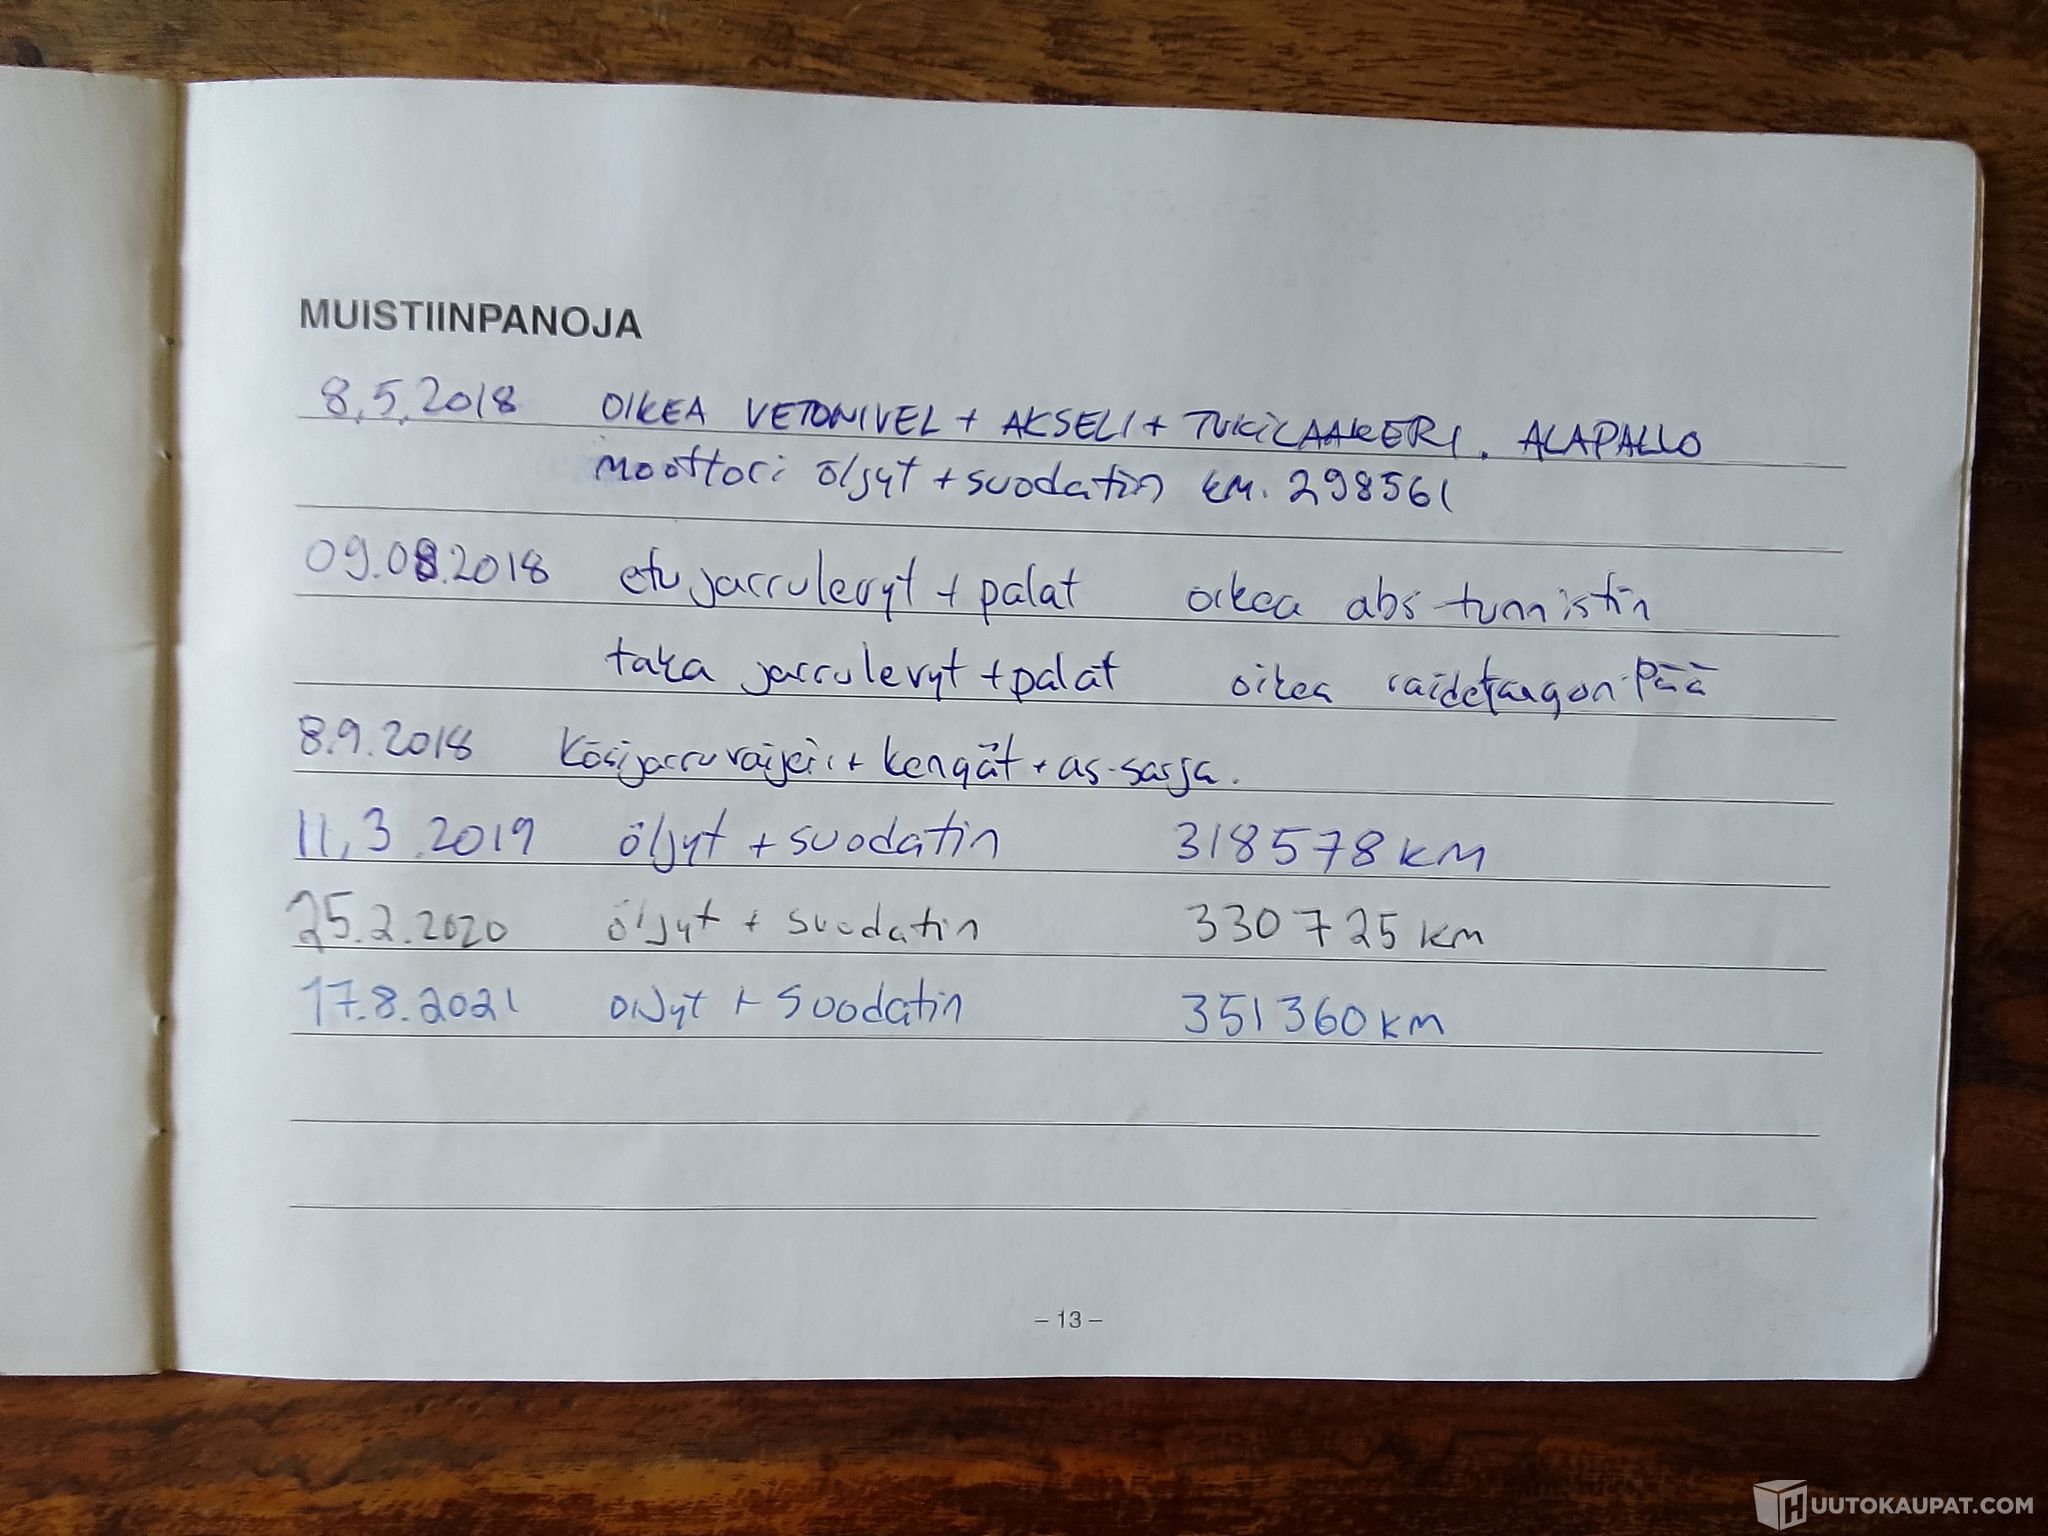 MUISTIINPANOJA
8.5.2018 OIKEA VETONIVEL + AKSELI + TUKILAAKERI. ALAPALLO
moottori öljyt + suodatin km. 298561
09.08.2018 etu jarrulevyt + palat oikea abs-tunnistin
taka jarrulevyt + palat oikea raidetangon pää
8.9.2018 Käsijarruvaijeri + kengät + as-sarja.
11.3.2019 öljyt + suodatin 318578 KM
25.2.2020 öljyt + suodatin 330725 km
17.8.2021 öljyt + suodatin 351360 KM
– 13 –
HUUTOKAUPAT.COM